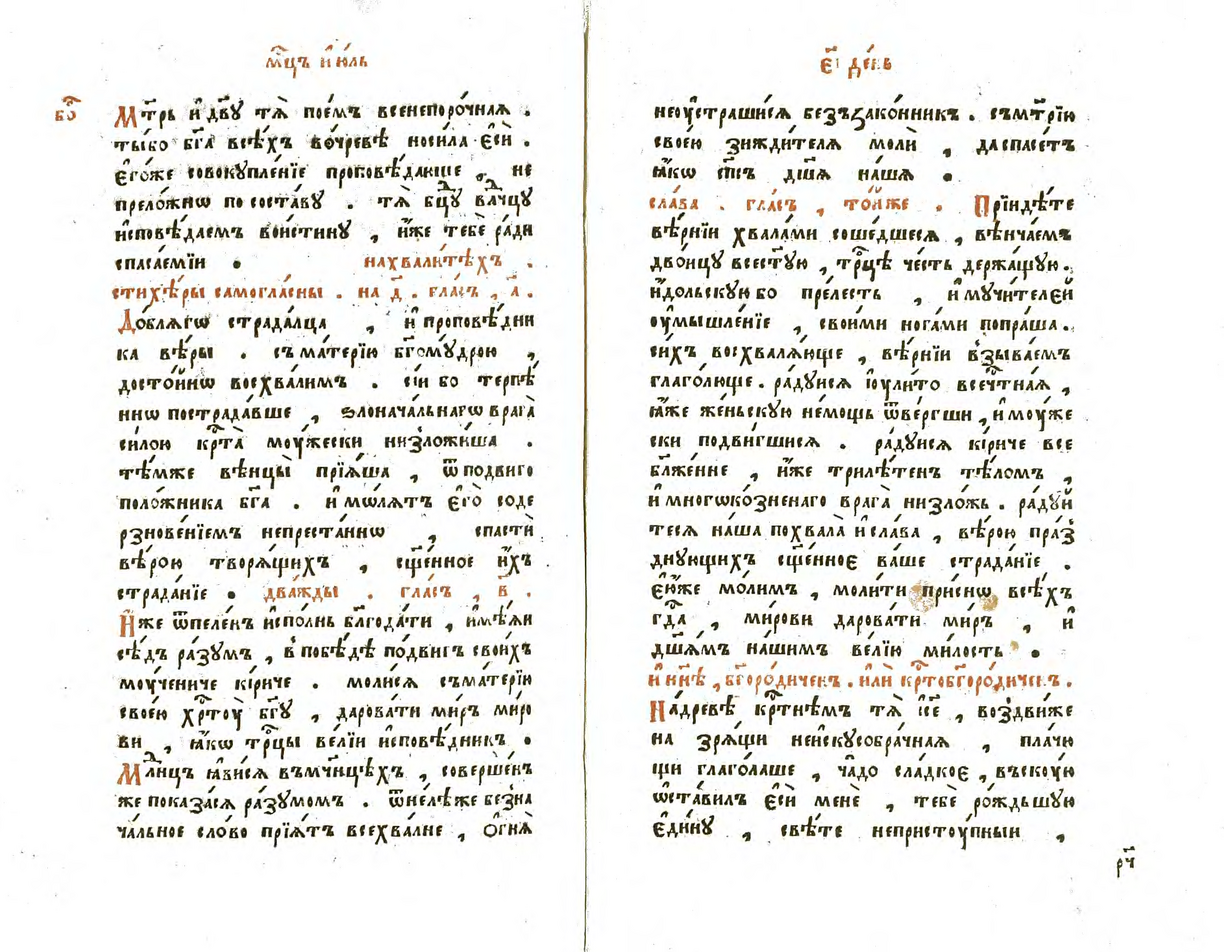 мⷭ҇цъ і҆ю́ль
бо҃
Мт҃рь и҆ дв҃у тѧ̀ пое́мъ всенепоро́чнаѧ .
ты́бо бг҃а всѣ́хъ во́чревѣ носи́ла є҆сѝ .
є҆го́же совокупле́нїе проповѣ́дающе , не
прело́жнѡ по соста́ву . тѧ̀ бц҃у влⷣчцу
и҆сповѣ́даемъ вои́стину , и҆́же тебѐ ра́ди
спаса́емїи . нахвали́техъ .
стихѣ́ры самогла́сны . на д҃ . гла́съ , а҃ .
До́блѧгѡ страда́лца , и҆ проповѣ́дни
ка вѣ́ры . съ ма́терїю бг҃ому́дрою ,
досто́йнѡ восхва́лимъ . сі́и бо терпѣ́
ннѡ пострада́вше , ѕлонача́льнагѡ врага̀
си́лою крⷭ҇та̀ моу́жески низложи́ша .
тѣ́мже вѣнцы̀ прїѧ́ша , ѿ подвиго
поло́жника бг҃а . и҆ мо́лѧтъ є҆го̀ соде
рзнове́нїемъ непреста́ннѡ , спастѝ
вѣ́рою творѧ́щихъ , сщ҃е́нное и҆́хъ
страда́нїе . два́жды . гла́съ , в҃ .
И҆́же ѿпеле́нъ и҆спо́лнь блг҃ода́ти , и҆мѣ́ѧи
сѣ́дъ ра́зумъ , в побѣ́дѣ по́двигъ свои́хъ
моу́чениче кі́риче . моли́сѧ съ ма́терїю
свое́ю хрⷭ҇тоу̀ бг҃у , дарова́ти ми́ръ миро
ви , ꙗ҆́кѡ трⷪ҇цы ве́лїи и҆сповѣ́дникъ .
Млⷣнцъ ꙗ҆ви́сѧ въ мч҃нцѣхъ , соверше́нъ
же показа́сѧ ра́зумомъ . ѿне́лѣже безна
ча́льное сло́во прїѧ́тъ всехва́лне , ѻ҆гнѧ̀
є҃і де́нь
неоу҆страши́сѧ безъзако́нникъ . съ мт҃рїю
свое́ю зижди́телѧ молѝ , да спасе́тъ
ꙗ҆́кѡ сп҃съ дш҃ѧ на́шѧ .
сла́ва . гла́съ , то́йже . Прїидѣ́те
вѣ́рнїи хвала́ми соше́дшесѧ , вѣнча́емъ
двои́цу всест҃у́ю , трⷪ҇цѣ че́сть держа́щую .
и҆́дольскую бо пре́лесть , и҆ мучи́телей
оу҆мышле́нїе , свои́ми нога́ми попра́ша .
си́хъ восхвалѧ́юще , вѣ́рнїи взыва́емъ
глаго́люще . ра́дуисѧ і҆оули́то всечⷭ҇тнаѧ ,
ꙗ҆́же же́ньскую не́мощь ѿве́ргши , и҆ моу́же
ски подви́гшисѧ . ра́дуисѧ кі́риче все
бл҃же́нне , и҆́же трилѣ́тенъ тѣ́ломъ ,
и҆ многѡко́зненаго врага̀ низло́жь . ра́дуй
тесѧ на́ша похвала̀ и҆ сла́ва , вѣ́рою пра́з
днующихъ сщ҃е́нноє ва́ше страда́нїе .
є҆и́же мо́лимъ , моли́ти при́снѡ всѣ́хъ
гдⷭ҇а , ми́рови дарова́ти ми́ръ , и҆
дш҃а́мъ на́шимъ ве́лїю ми́лость .
и҆ нн҃ѣ , бг҃оро́диченъ . и҆лѝ крⷭ҇тобг҃оро́диченъ .
На дре́вѣ крⷭ҇тнѣмъ тѧ̀ і҆с҃е , воздви́же
на зрѧ́щи неи҆скусобра́чнаѧ , пла́чю
щи глаго́лаше , ча́до сла́дкоє , въску́ю
ѡ҆ста́вилъ є҆сѝ менѐ , тебѐ ро́ждьшую
є҆ди́ну , свѣ́те непристоу́пныи ,
рч҃